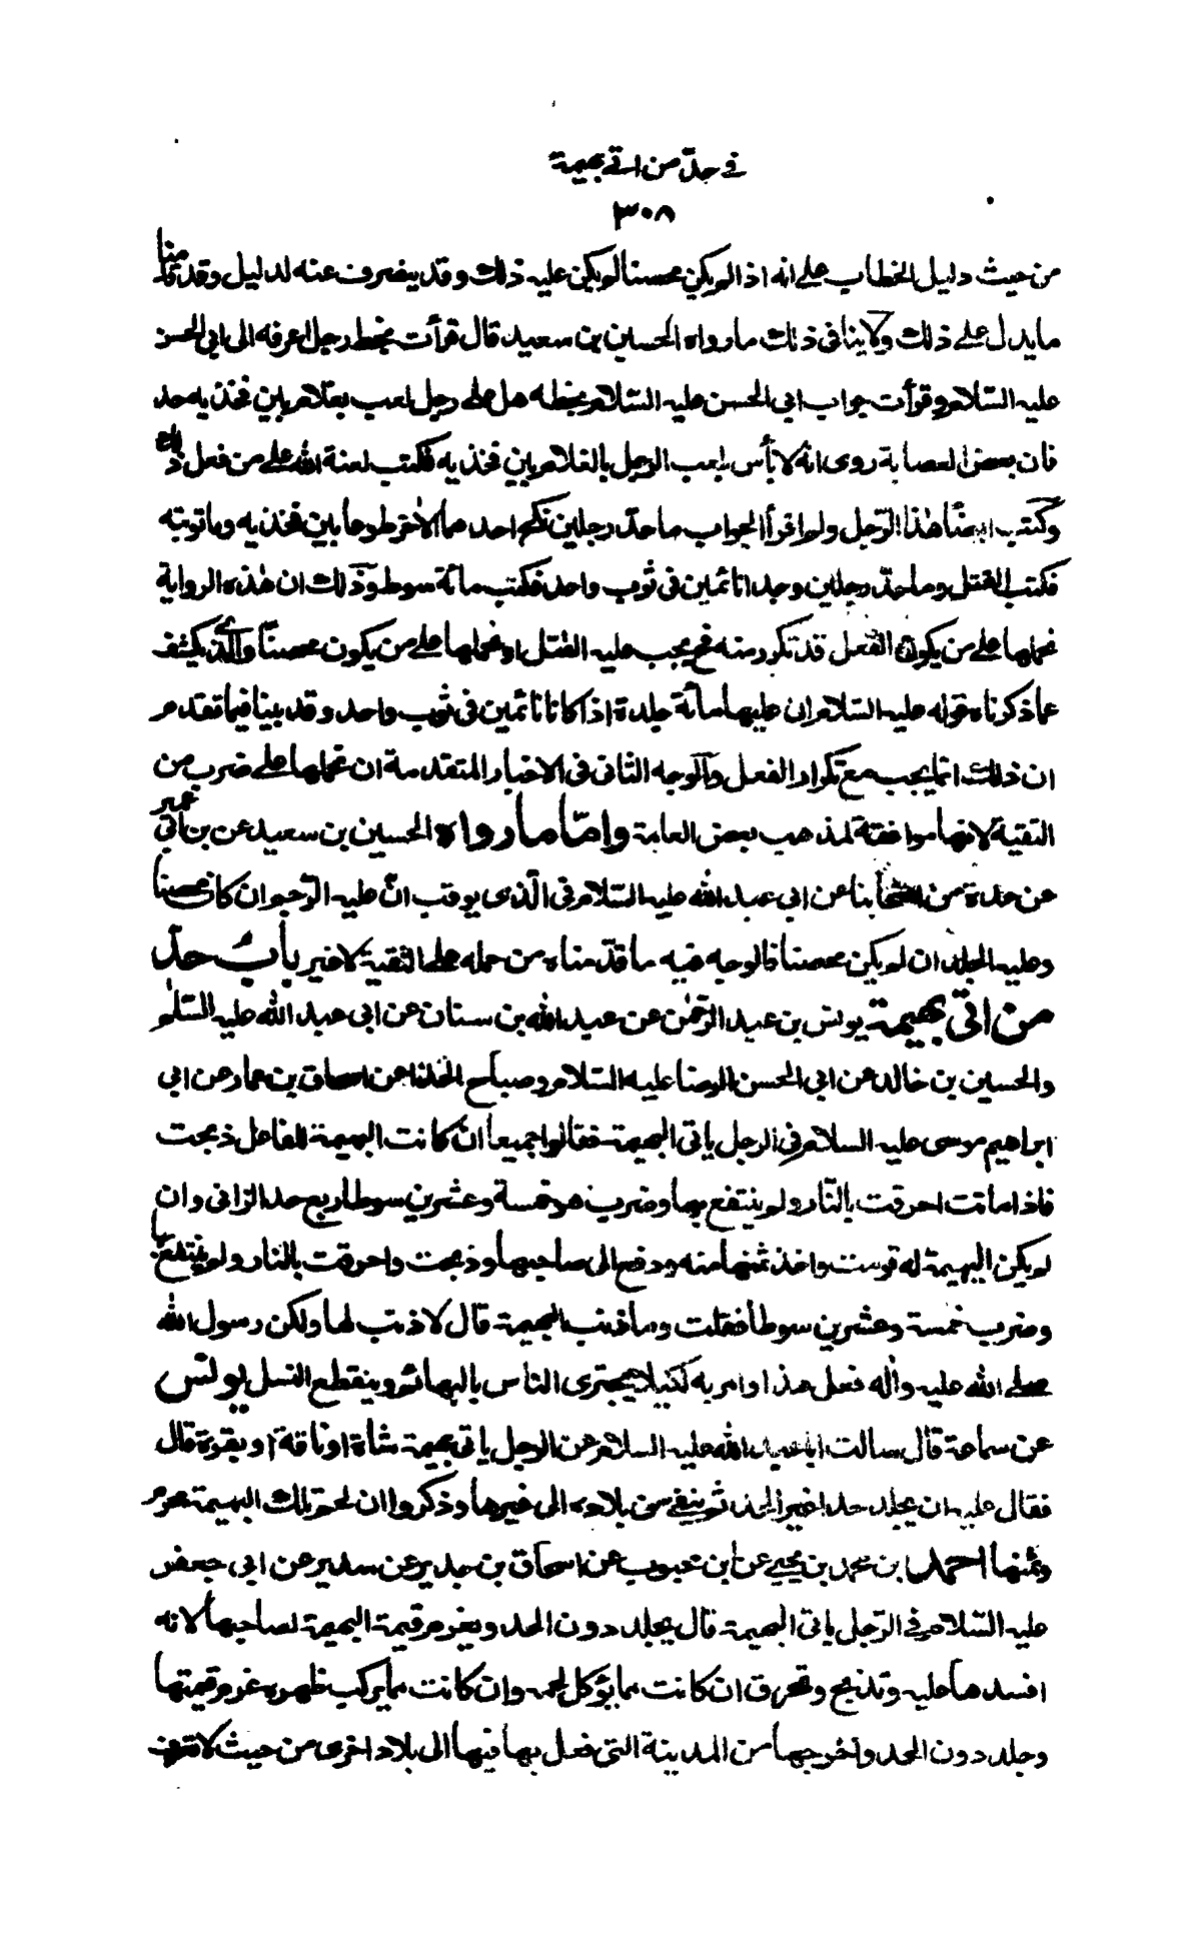 في حدّ من اتى بهيمة
٣٠٨
من حيث دليل الخطاب على انه اذا لم يكن محصنا لم يكن عليه ذلك وقد ينصرف عنه لدليل وقد قدمنا
ما يدل على ذلك ولا ينافي ذلك ما رواه الحسين بن سعيد قال قرأت بخط رجل اعرفه الى ابي الحسن
عليه السّلام وقرأت جواب ابي الحسن عليه السّلام بخطه هل على رجل لعب بغلام بين فخذيه حد
فان بعض العصابة روى انه لا بأس بلعب الرجل بالغلام بين فخذيه فكتب لعنة الله على من فعل ذلك
وكتب ايضًا هذا الرّجل ولم اقرأ الجواب ما حدّ رجلين نكح احدهما الآخر طوعا بين فخذيه وما توبته
فكتب القتل وما حدّ رجلين وجدا نائمين في ثوب واحد فكتب مائة سوط وذلك ان هذه الرواية
نحملها على من يكون الفعل قد تكرر منه فحينئذ يجب عليه القتل او نحملها على من يكون محصنًا والّذي يكشف
عما ذكرناه قوله عليه السّلام ان عليهما مائة جلدة اذا كانا نائمين في ثوب واحد وقد بينا فيما تقدم
ان ذلك انما يجب مع تكرار الفعل والوجه الثاني في الاخبار المتقدمة ان نحملها على ضرب من
التقية لانها موافقة لمذهب بعض العامة وامّا ما رواه الحسين بن سعيد عن بن ابي عمير
عن عدة من اصحابنا عن ابي عبد الله عليه السّلام في الّذي يوقب انّ عليه الرّجم ان كان محصنا
وعليه الجلد ان لم يكن محصنا فالوجه فيه ما قدّمناه من حمله على التقية لا غير باب حدّ
من اتى بهيمة يونس بن عبد الرّحمٰن عن عبد الله بن سنان عن ابي عبد الله عليه السّلم
والحسين بن خالد عن ابي الحسن الرضا عليه السّلام وصباح الحذاء عن اسحاق بن عمار عن ابي
ابراهيم موسى عليه السلام في الرجل ياتي البهيمة فقالوا جميعا ان كانت البهيمة للفاعل ذبحت
فاذا ماتت احرقت بالنّار ولم ينتفع بها وضرب هو خمسة وعشرين سوطا ربع حد الزاني وان
لم يكن البهيمة له قومت واخذ ثمنها منه ودفع الى صاحبها وذبحت واحرقت بالنار ولم ينتفع بها
وضرب خمسة وعشرين سوطا فقلت وما ذنب البهيمة قال لا ذنب لها ولكن رسول الله
صلى الله عليه وآله فعل هذا وامر به لكيلا يجترى الناس بالبهائم وينقطع النسل يونس
عن سماعة قال سالت ابا عبد الله عليه السلام عن الرجل ياتي بهيمة شاة او ناقة او بقرة قال
فقال عليه ان يجلد حدا غير الحد ثم ينفى من بلاده الى غيرها وذكروا ان لحم تلك البهيمة محرم
وثمنها احمد بن محمد بن يحيى عن ابن محبوب عن اسحاق بن جدير عن سدير عن ابي جعفر
عليه السّلام في الرّجل ياتي البهيمة قال يجلد دون الحد ويغرم قيمة البهيمة لصاحبها لانه
افسدها عليه وتذبح وتحرق ان كانت مما يؤكل لحمه وان كانت مما يركب ظهره غرم قيمتها
وجلد دون الحد واخرجها من المدينة التي فعل بها فيها الى بلاد اخرى من حيث لا تعرف